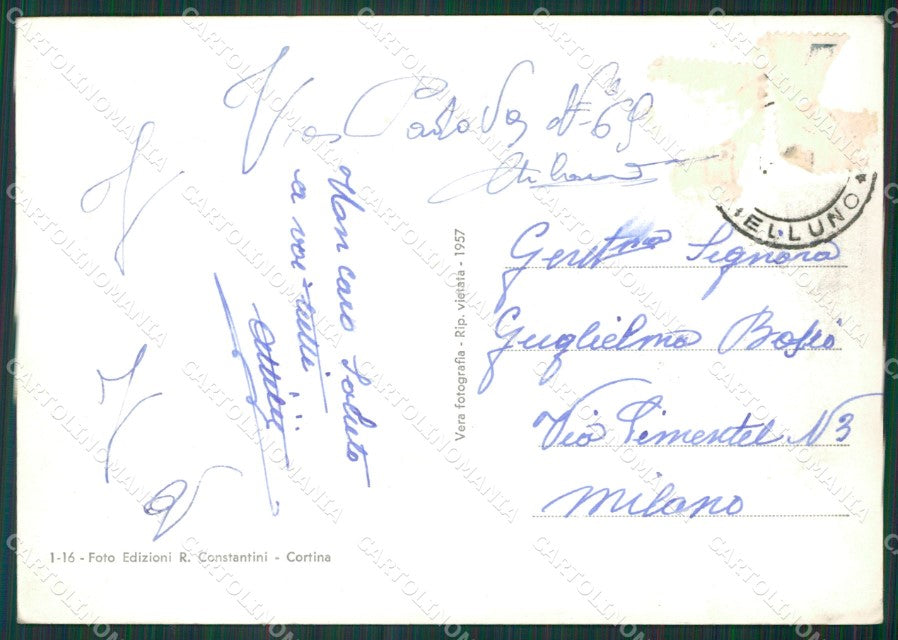 Via Padova N° 69
Milano
Man caro Saluto
a voi tutti
Attilio
ELLUNO
Gent.ma Signora
Guglielma Bosio
Via Pimentel N 3
Milano
Vera fotografia - Rip. vietata - 1957
1-16 - Foto Edizioni R. Constantini - Cortina
CARTOLINOMANIA